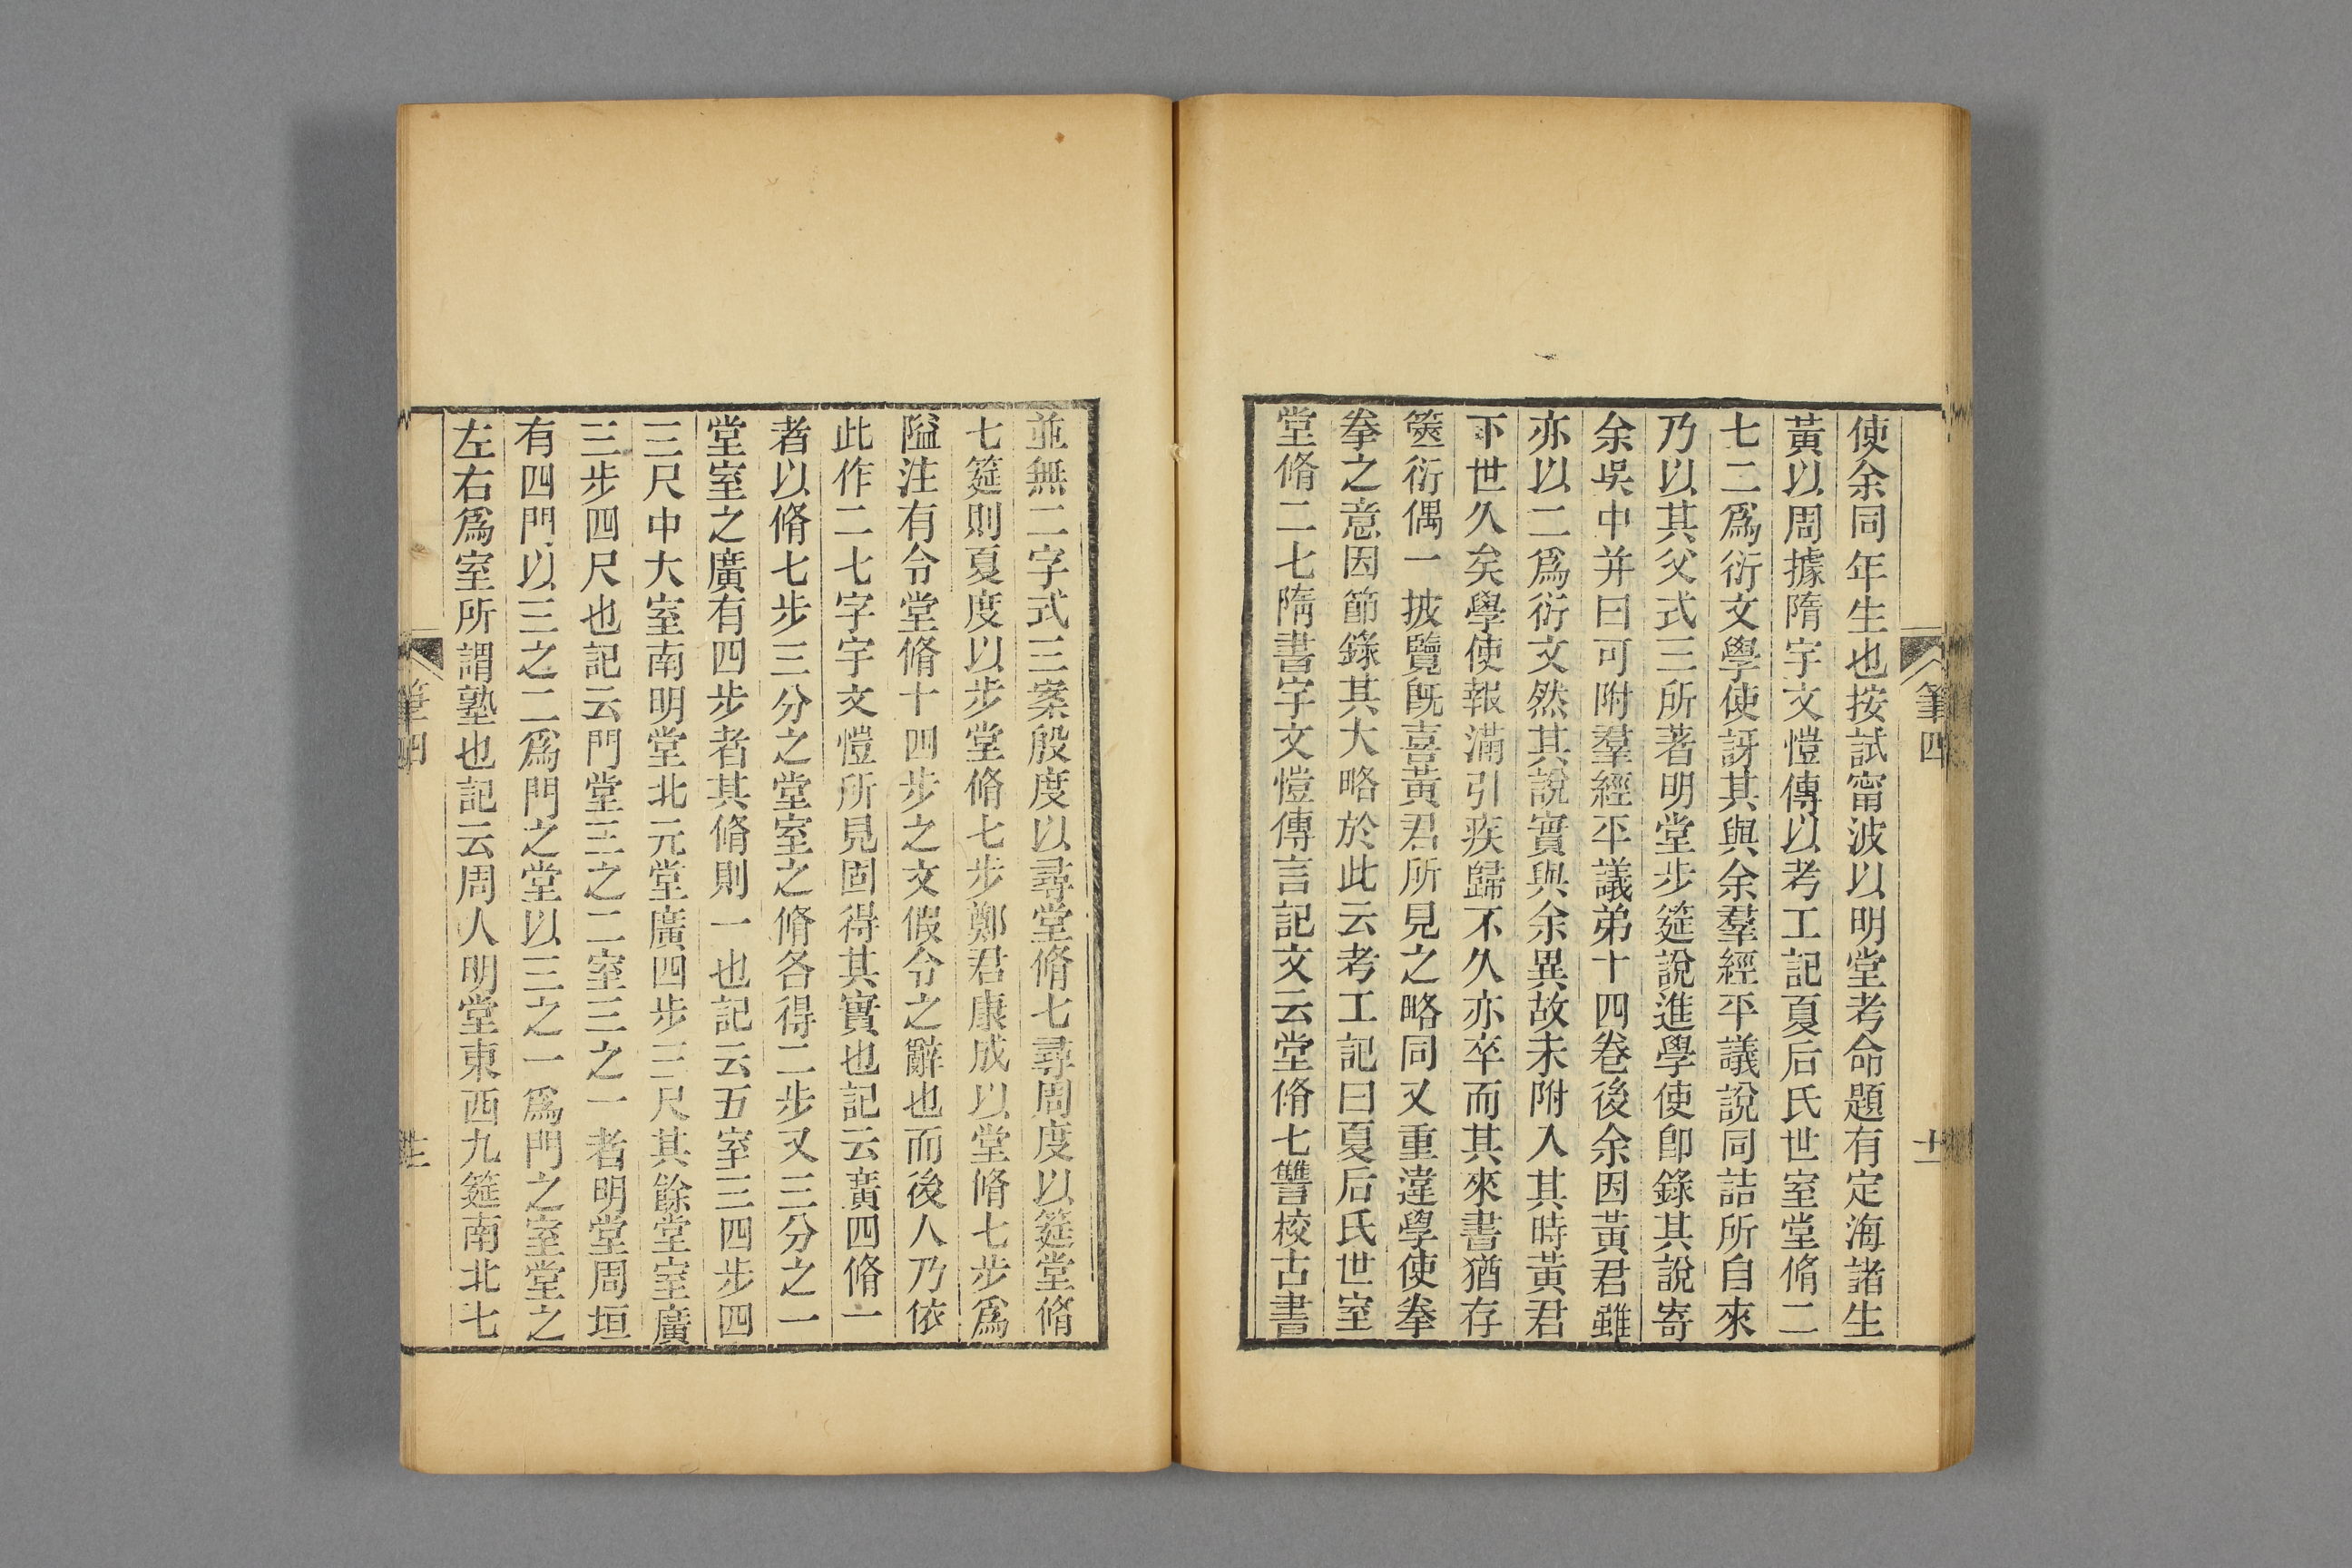 使余同年生也按試甯波以明堂考命題有定海諸生
黃以周據隋宇文愷傳以考工記夏后氏世室堂脩二
七二爲衍文學使訝其與余羣經平議說同詰所自來
乃以其父式三所著明堂步筵說進學使卽錄其說寄
余吳中并曰可附羣經平議弟十四卷後余因黃君雖
亦以二爲衍文然其說實與余異故未附入其時黃君
下世久矣學使報滿引疾歸不久亦卒而其來書猶存
篋衍偶一披覽旣喜黃君所見之略同又重違學使拳
拳之意因節錄其大略於此云考工記曰夏后氏世室
堂脩二七隋書宇文愷傳言記文云堂脩七讐校古書
筆四
十一
並無二字式三案殷度以尋堂脩七尋周度以筵堂脩
七筵則夏度以步堂脩七步鄭君康成以堂脩七步爲
隘注有令堂脩十四步之文假令之辭也而後人乃依
此作二七字宇文愷所見固得其實也記云廣四脩一
者以脩七步三分之堂室之脩各得二步又三分之一
堂室之廣有四步者其脩則一也記云五室三四步四
三尺中大室南明堂北元堂廣四步三尺其餘堂室廣
三步四尺也記云門堂三之二室三之一者明堂周垣
有四門以三之二爲門之堂以三之一爲門之室堂之
左右爲室所謂塾也記云周人明堂東西九筵南北七
筆四